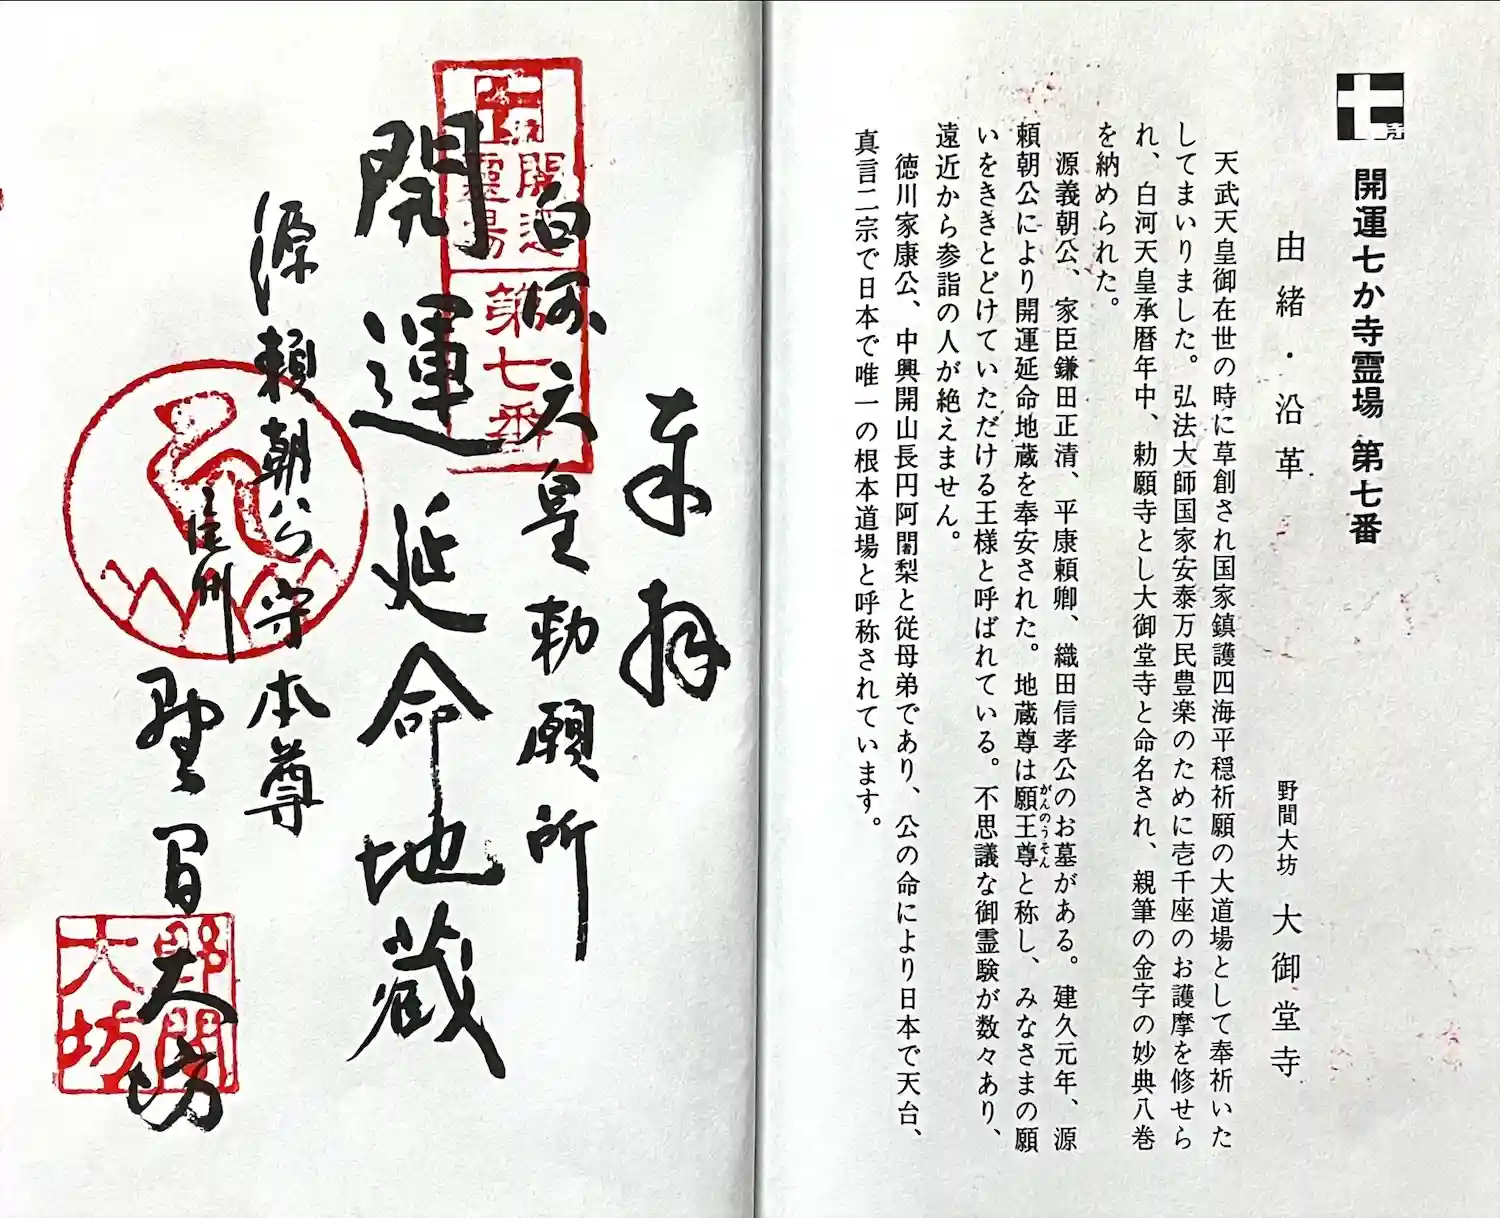 七
寺
開運七か寺霊場 第七番
由緒・沿革
野間大坊 大御堂寺
天武天皇御在世の時に草創され国家鎮護四海平穏祈願の大道場として奉祈いた
してまいりました。弘法大師国家安泰万民豊楽のために壱千座のお護摩を修せら
れ、白河天皇承暦年中、勅願寺とし大御堂寺と命名され、親筆の金字の妙典八巻
を納められた。
源義朝公、家臣鎌田正清、平康頼卿、織田信孝公のお墓がある。建久元年、源
頼朝公により開運延命地蔵を奉安された。地蔵尊は願王尊と称し、みなさまの願
がんのうそん
いをききとどけていただける王様と呼ばれている。不思議な御霊験が数々あり、
遠近から参詣の人が絶えません。
徳川家康公、中興開山長円阿闍梨と従母弟であり、公の命により日本で天台、
真言二宗で日本で唯一の根本道場と呼称されています。
奉拝
白河天皇勅願所
開運延命地蔵
源頼朝公守本尊
尾州
野間大坊
七
寺
開運
霊場
第七番
野間
大坊